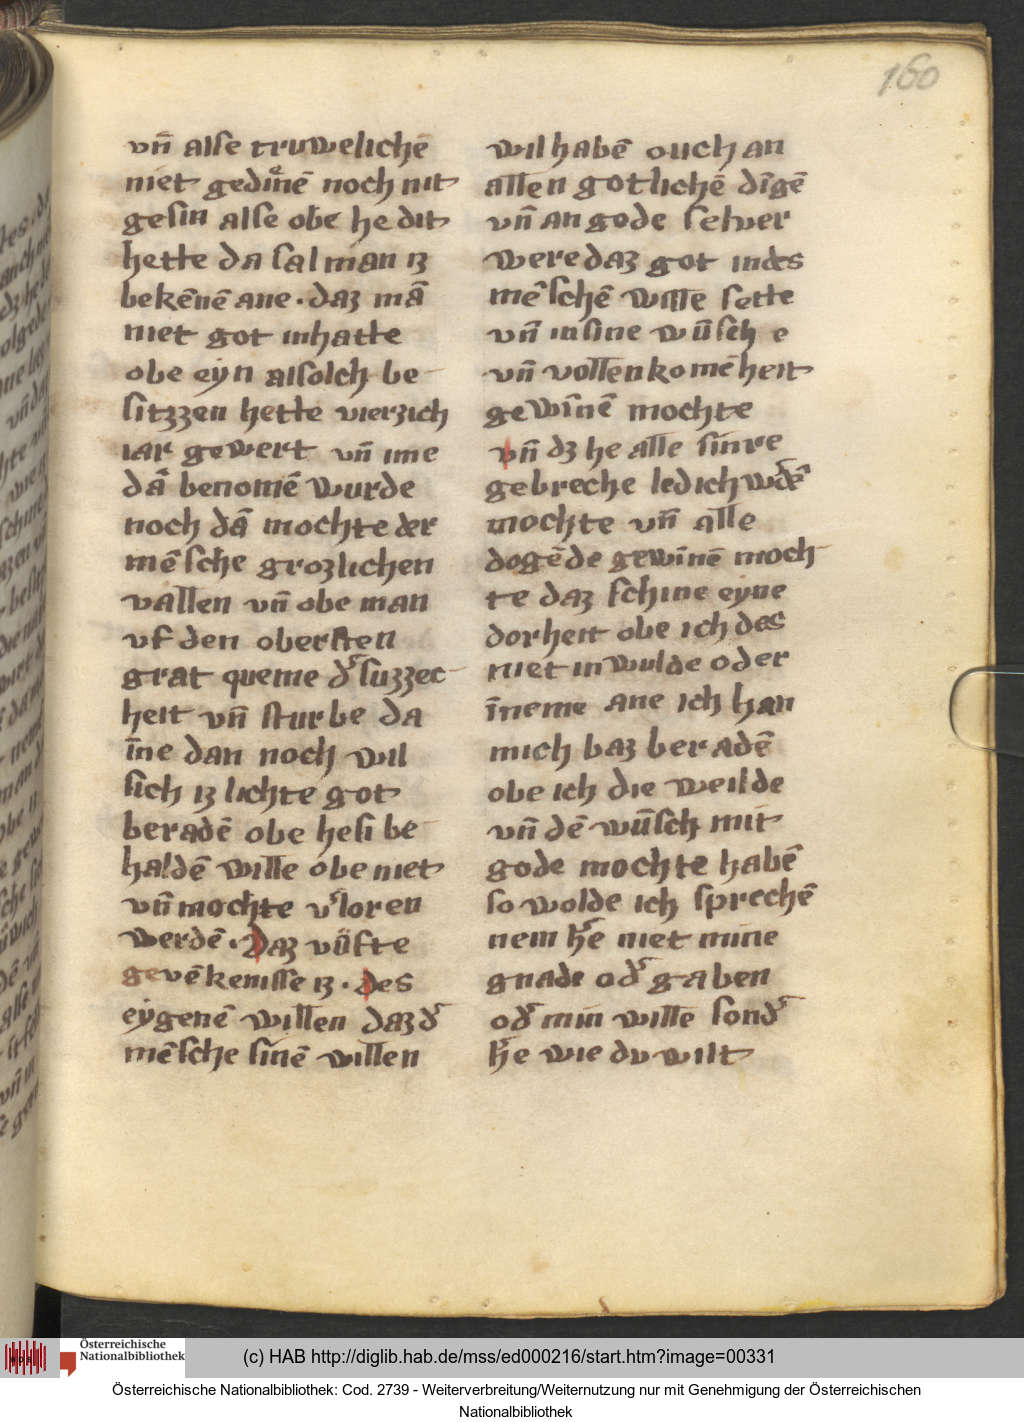 160
vn̄ alſe truwelichē
niet gedinē noch nit
geſin alſe obe he dit
hette da ſalman iz
bekēnē ane · daz mā
niet got inhatte
obe eyn alſolch be
ſitzzen hette vierzich
iar gewert vn̄ ime
dā benomē wurde
noch dā mochte der
mēſche grozlichen
vallen vn̄ obe man
vf den oberſten
grat queme dˀ ſuzzec
heit vn̄ ſturbe da
īne dan noch wil
ſich iz lichte got
beradē obe heſi be
haldē wille obe niet
vn̄ mochte vˀloren
werdē · Daz vůfte
gevēkeniſſe iz · des
eygenē willen daz dˀ
mēſche ſinē willen
wil habē ouch an
allen gotlichē dīgē
vn̄ an gode ſelver
were daz got indes
mēſchē wille ſette
vn̄ inſine wūſch e
vn̄ vollenkomēheit
gewīnē mochte
vn̄ dz he alle ſinre
gebreche ledich wˀdē
mochte vn̄ alle
dogēde gewīnē moch
te daz ſchine eyne
dorheit obe ich des
niet inwulde oder
īneme ane ich han
mich baz beradē
obe ich die weilde
vn̄ dē wūſch mit
gode mochte habē
ſo wolde ich ſprechē
nein hˀe niet mine
gnade odˀ gaben
odˀ min wille ſondˀ
hˀe wie du wilt
Österreichische
Nationalbibliothek
(c) HAB http://diglib.hab.de/mss/ed000216/start.htm?image=00331
Österreichische Nationalbibliothek: Cod. 2739 - Weiterverbreitung/Weiternutzung nur mit Genehmigung der Österreichischen
Nationalbibliothek